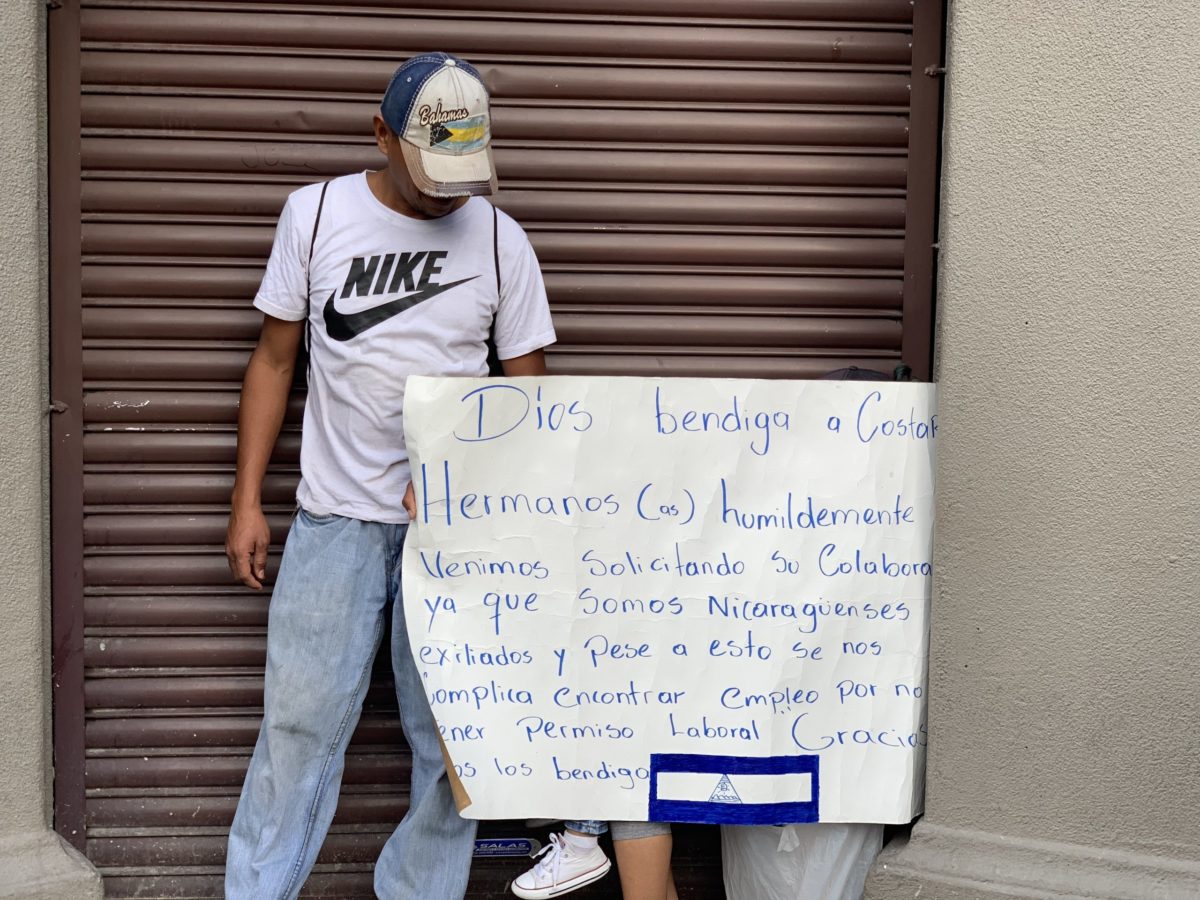 Bahamas
NIKE
Dios bendiga a Costa R
Hermanos (as) humildemente
Venimos Solicitando Su Colabora
ya que Somos Nicaragüenses
exiliados y pese a esto se nos
Complica encontrar empleo por no
ener Permiso Laboral Gracias
os los bendiga
SALAS